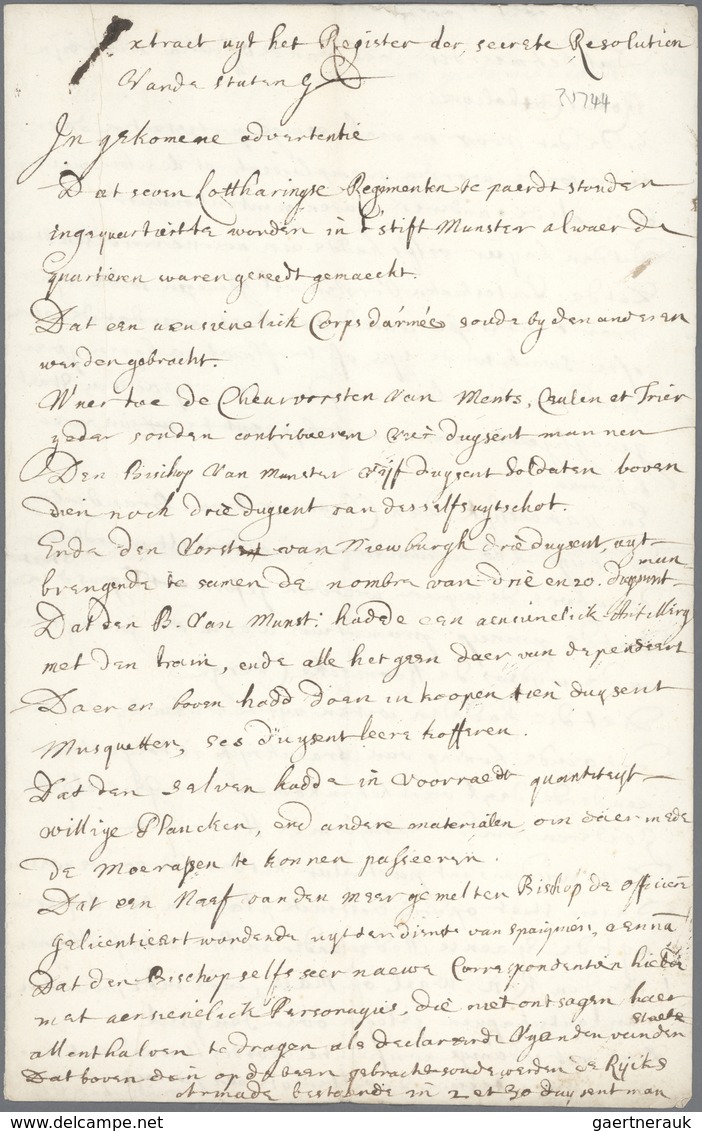 Extract uyt het Register der secrete Resolutien
Vande staten G
30744
In gekomene advertentie
Dat seven Lottharingse Regimenten te paerdt stonden
ingequartiert te worden in t' stift Munster alwaer de
quartieren waren gereedt gemaeckt.
Dat een aensienelick Corps d'armée soude by den anderen
werden gebracht.
Waer toe de Cheurvorsten van Ments, Ceulen et Trier
yeder souden contribueren vier duysent mannen
Den Bischop van Munster vijf duysent Soldaten boven
dien noch drie duysent van desselfs uytschot.
Ende den Vorst van Niewburgh drie duysent, uyt
brengende te samen de nombre van drie en 20. duysent
man
Dat den B. van Munst: hadde een aensienelick Artillery
met den train, ende alle het geen daer van dependeert
Daer en boven hadd doen inkoopen tien duysent
Musquetten, ses duysent leere kofferen.
Dat den selven hadde in voorraedt quantiteyt
willige Plancken, end andere materialen om daer mede
de Moerassen te konnen passeeren.
Dat een Neef van den meergemelten Bischop de officiere
gelicentieert wordende uyt den dienst van Spaignien, aenna
Dat den Bischop selfs seer nauwe Correspondentien hield
met aensienelick Personagien, die niet ontsagen haer
allenthalven te dragen als declareerde Vyanden van den
staet
Dat boven dien op de been gebracht soude werden de Rijks
armade bestaende in 2 et 30 duysent man
gaertnerauk
www.delcampe.net